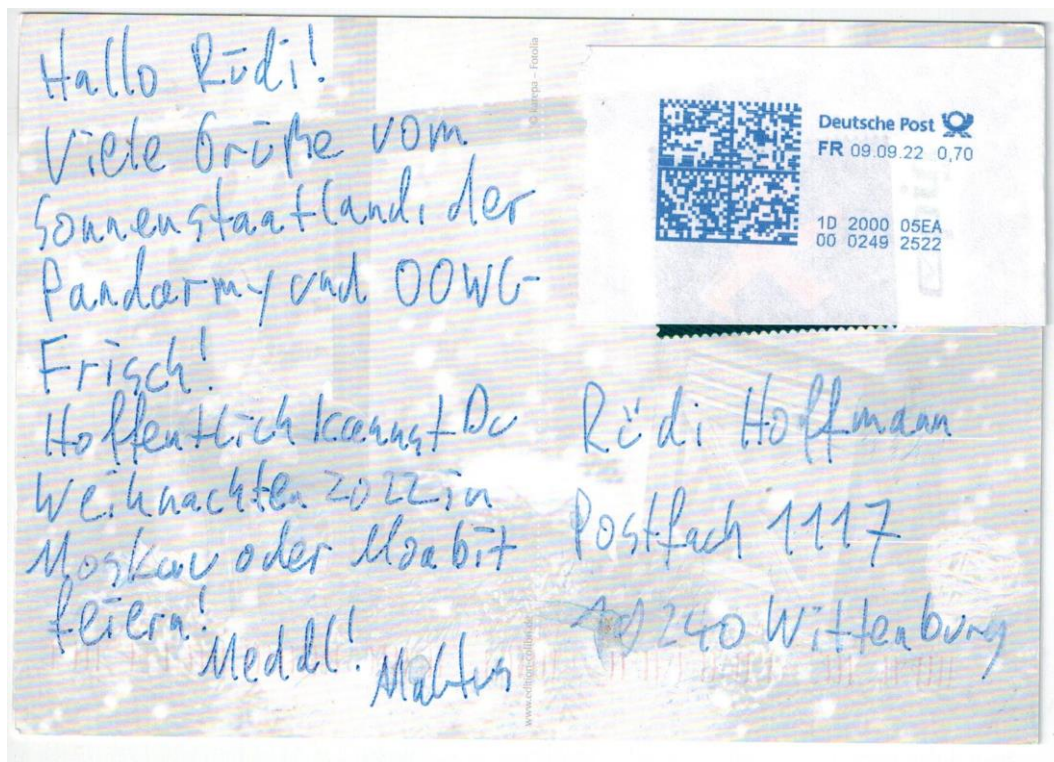 Hallo Rüdi!
Viele Grüße vom
Sonnenstaatland, der
Pandarmy und OOWG-
Frisch!
Hoffentlich kannst Du
Weihnachten 2022 in
Moskau oder Moabit
feiern!
Meddl!
© Karepa – Fotolia
Deutsche Post
FR 09.09.22 0,70
1D 2000 05EA
00 0249 2522
Rüdi Hoffmann
Postfach 1117
19240 Wittenburg